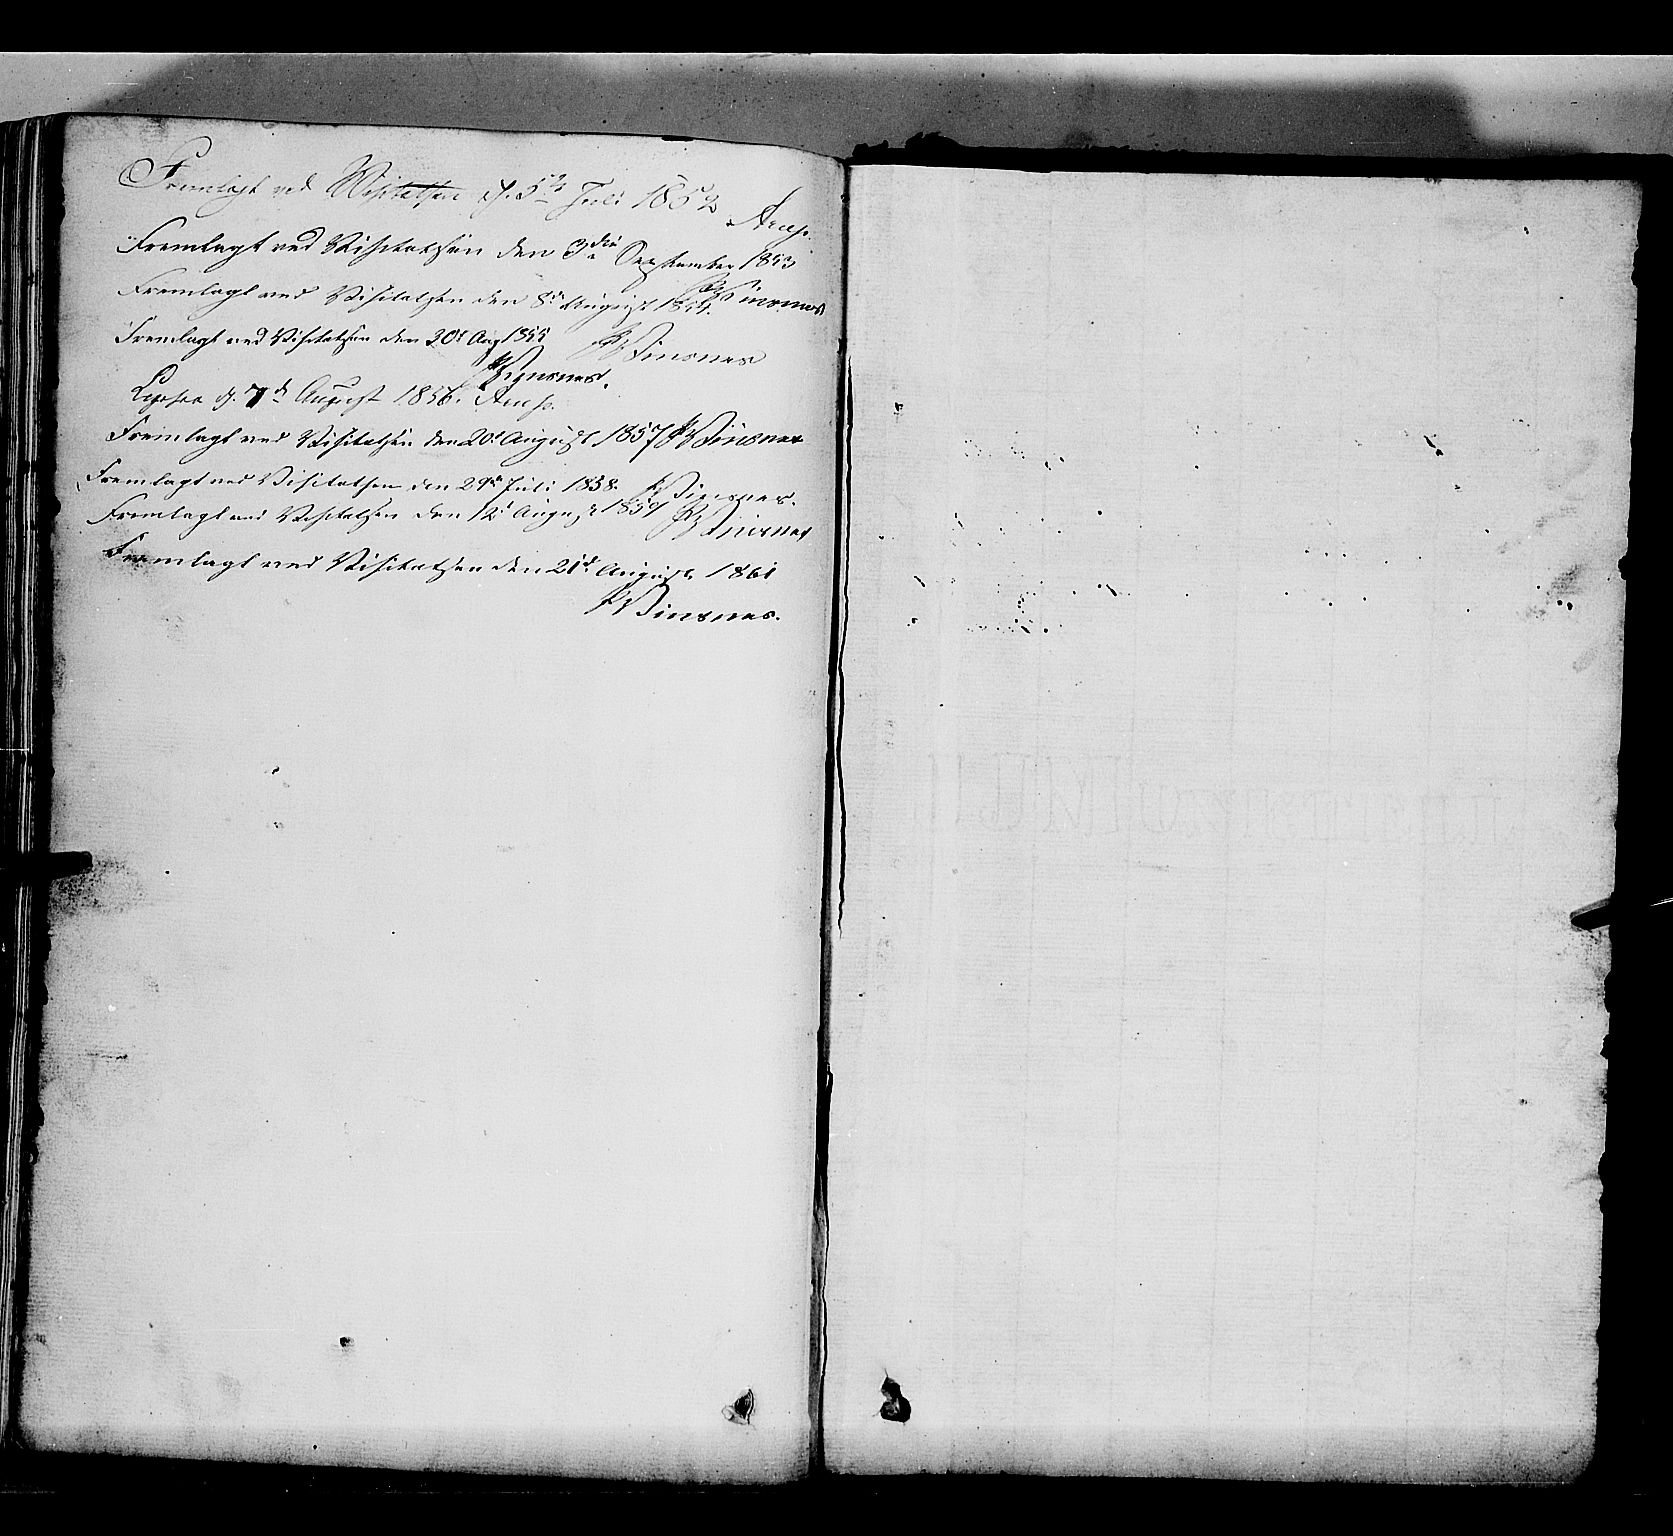 Fremlagt ved Visitatsen d. 5te Juli 1852
Arup.
Fremlagt ved Visitatsen den 3die September 1853
PWinsnes
Fremlagt ved Visitatsen den 8de August 1854.
PWinsnes
Fremlagt ved Visitatsen den 20d Aug 1855
PWinsnes.
d. 7de August 1856. Arup.
Fremlagt ved Visitatsen den 20d August 1857 PWinsnes
Fremlagt ved Visitatsen den 29de Juli 1858. PWinsnes.
Fremlagt ved Visitatsen den 12d August 1859 PWinsnes
Fremlagt ved Visitatsen den 21d August 1861
PWinsnes.